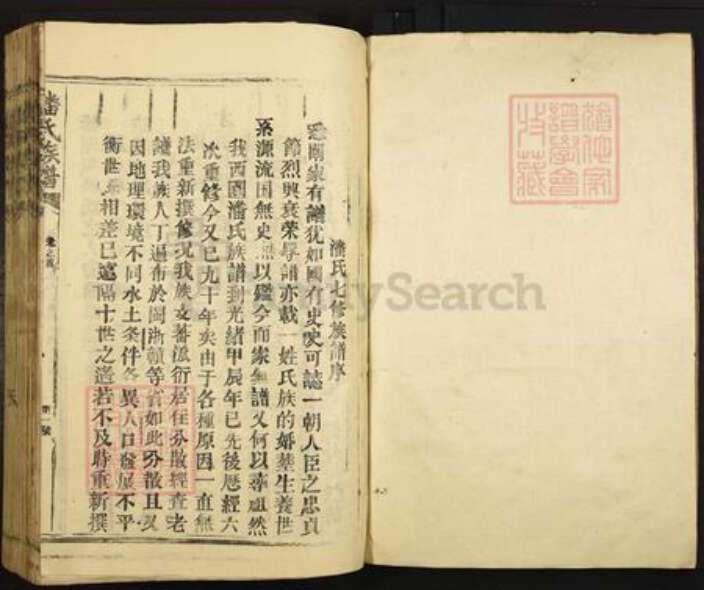 潘氏七修族譜序
國家有譜犹如國有史史可誌一朝人臣之忠貞
節烈興衰荣辱譜亦載一姓氏族的婚基生養世
系源流国無史無以鑑今而家無譜又何以尋祖然
我西園潘氏族譜到光緒甲辰年已先後歷經六
次重修今又已九十年矣由于各種原因一直無
法重新撰修况我族支蕃派衍居住分散經查老
譜我族人丁遍布於閩浙贛等省如此分散且又
因地理環境不同水土条件各異人口發展不平
衡世系相差已遠隔十世之遙若不及時重新撰
潘氏族譜
卷之首
第一號
譜學會
收藏
MySearch